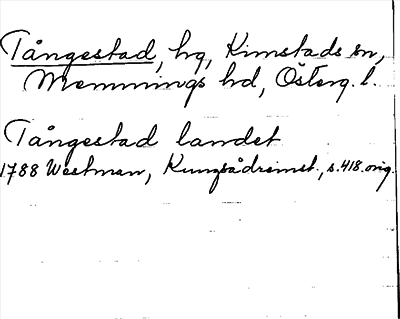 Tångestad, hg, Kimstads sn,
Memmings hd, Österg. l.
Tångestad landet
1788 Westman, Kungsådreinst., s. 418. orig.